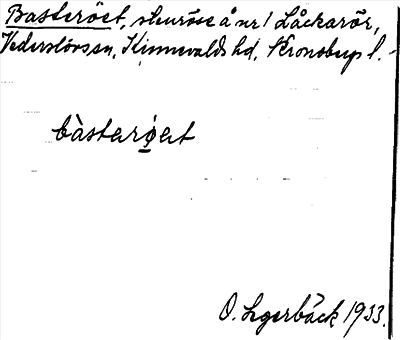 Basteröet, stenröse å nr 1 Låckarör,
Vederslövs sn, Kinnevalds hd, Kronobergs l. -
bàsterö̀et
O. Legerbäck 1933.